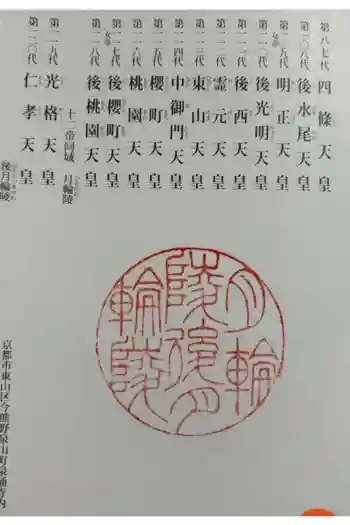 第八七代 四條天皇
第一〇八代 後水尾天皇
第一〇九代 女帝 明正天皇
第一一〇代 後光明天皇
第一一一代 後西天皇
第一一二代 霊元天皇
第一一三代 東山天皇
第一一四代 中御門天皇
第一一五代 櫻町天皇
第一一六代 桃園天皇
第一一七代 女帝 後櫻町天皇
第一一八代 後桃園天皇
十二帝同域 月輪陵
第一一九代 光格天皇
第一二〇代 仁孝天皇
後月輪陵
京都市東山区今熊野泉山町泉涌寺内
月輪
陵後月
輪陵